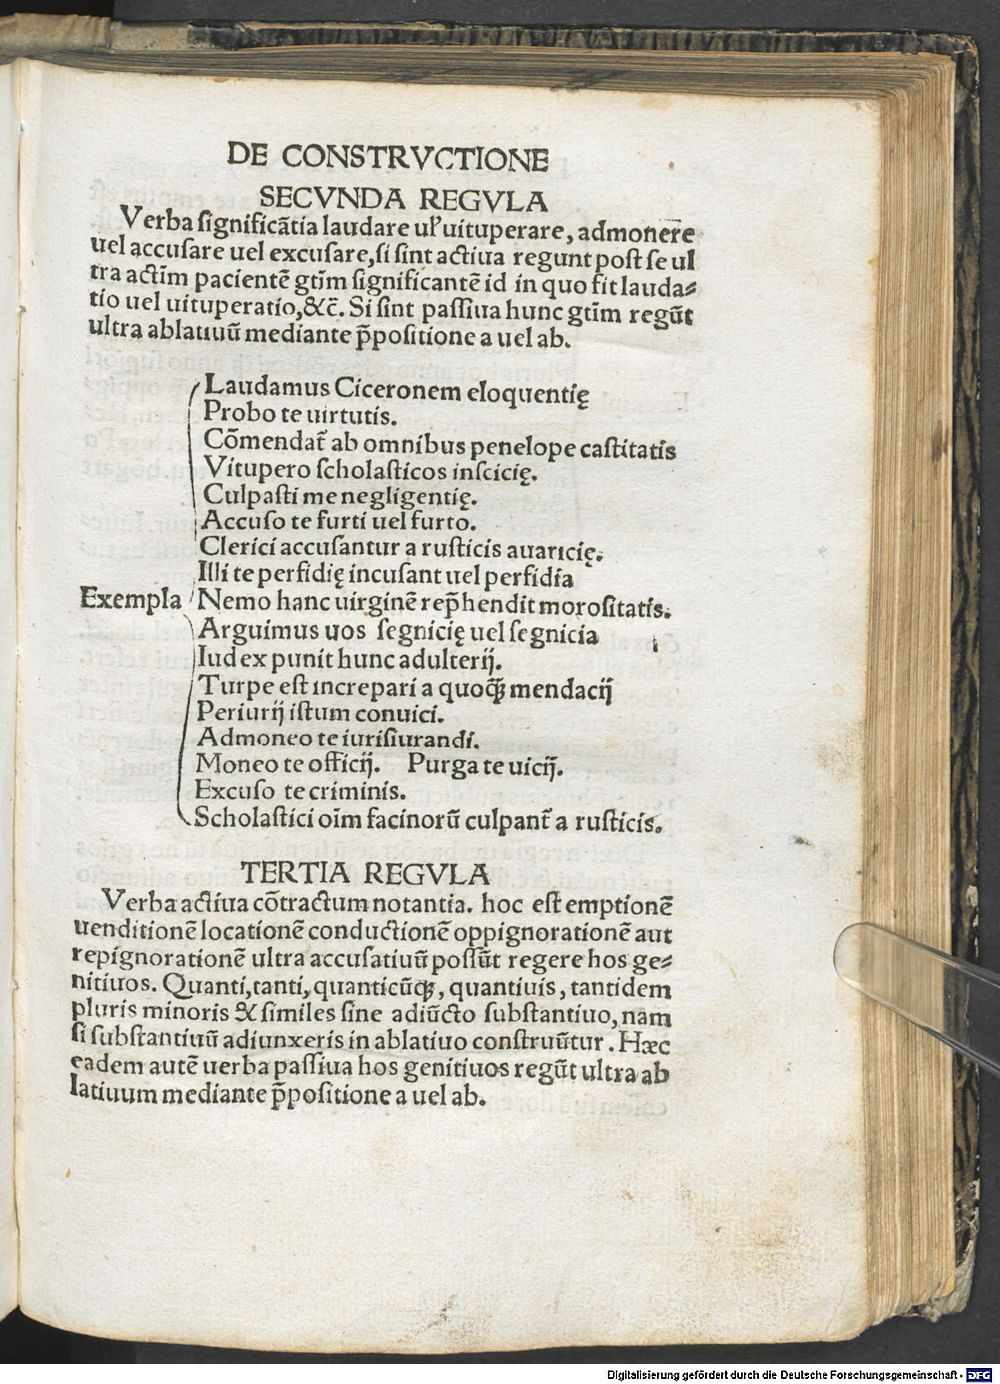 DE CONSTRVCTIONE
SECVNDA REGVLA
Verba significãtia laudare ul̉ uituperare, admonere
uel accusare uel excusare, si sint actiua regunt post se ul
tra actĩm pacientẽ gtĩm significantẽ id in quo fit lauda⸗
tio uel uituperatio, &c̃. Si sint passiua hunc gtĩm regũt
ultra ablatiuũ mediante p̃positione a uel ab.
Laudamus Ciceronem eloquentię
Probo te uirtutis.
Cõmendat̃ ab omnibus penelope castitatis
Vitupero scholasticos inscicię.
Culpasti me negligentię.
Accuso te furti uel furto.
Clerici accusantur a rusticis auaricię.
Illi te perfidię incusant uel perfidia
Exempla Nemo hanc uirginẽ rep̃hendit morositatis.
Arguimus uos segnicię uel segnicia
Iudex punit hunc adulterij.
Turpe est increpari a quoq̃ʒ mendacij
Periurij istum conuici.
Admoneo te iurisiurandi.
Moneo te officij. Purga te uicij.
Excuso te criminis.
Scholastici oĩm facinorũ culpant̃ a rusticis.
TERTIA REGVLA
Verba actiua cõtractum notantia. hoc est emptionẽ
uenditionẽ locationẽ conductionẽ oppignorationẽ aut
repignorationẽ ultra accusatiuũ possũt regere hos ge⸗
nitiuos. Quanti, tanti, quanticũqʒ, quantiuis, tantidem
pluris minoris & similes sine adiũcto substantiuo, nam
si substantiuũ adiunxeris in ablatiuo construũtur. Hæc
eadem autẽ uerba passiua hos genitiuos regũt ultra ab
latiuum mediante p̃positione a uel ab.
Digitalisierung gefördert durch die Deutsche Forschungsgemeinschaft - DFG